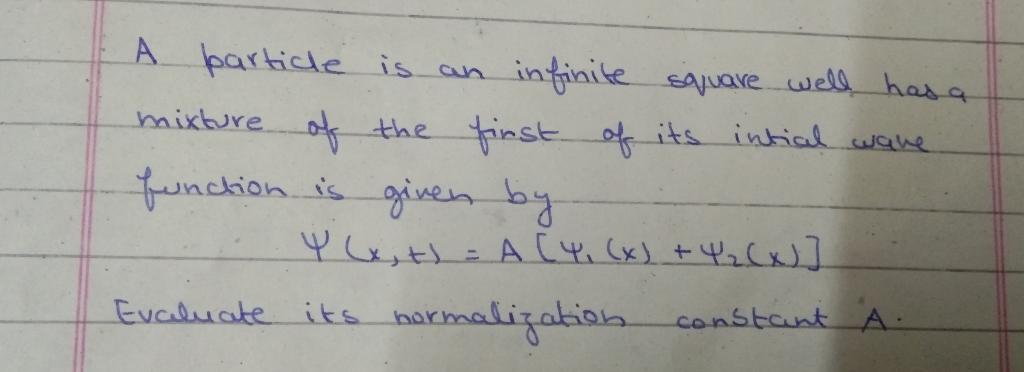 A particle is an infinite square well has a
mixture of the first of its intial wave
function is given by
Ψ(x,t) = A [Ψ₁(x) + Ψ₂(x)]
Evaluate its normalization constant A.